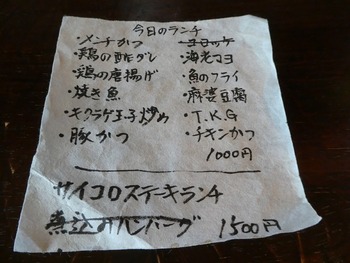 今日のランチ
・メンチかつ
・鶏の酢ダレ
・鶏の唐揚げ
・焼き魚
・キクラゲ玉子炒め
・豚かつ
・コロッケ
・海老マヨ
・魚のフライ
・麻婆豆腐
・T.K.G
・チキンかつ
1000円
サイコロステーキランチ
煮込のハンバーグ 1500円